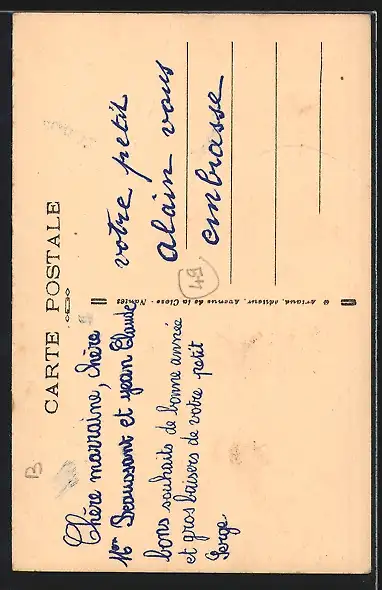 CARTE POSTALE
B
Chère marraine, chère
Mme Beaussant et Jean Claude
bons souhaits de bonne année
et gros baisers de votre petit
Serge
votre petit
Alain vous
embrasse
49
Artaud, éditeur, avenue de la Close - Nantes